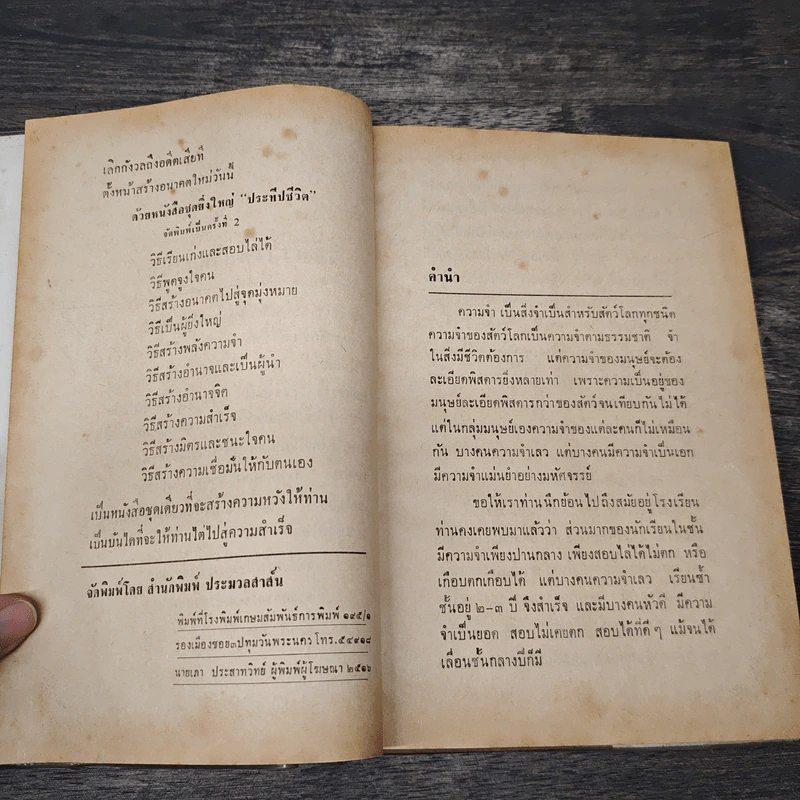 เลิกกังวลถึงอดีตเสียที
ตั้งหน้าสร้างอนาคตใหม่วันนี้
ด้วยหนังสือชุดยิ่งใหญ่ “ประทีปชีวิต”
จัดพิมพ์เป็นครั้งที่ 2
วิธีเรียนเก่งและสอบไล่ได้
วิธีพูดจูงใจคน
วิธีสร้างอนาคตไปสู่จุดมุ่งหมาย
วิธีเป็นผู้ยิ่งใหญ่
วิธีสร้างพลังความจำ
วิธีสร้างอำนาจและเป็นผู้นำ
วิธีสร้างอำนาจจิต
วิธีสร้างความสำเร็จ
วิธีสร้างมิตรและชนะใจคน
วิธีสร้างความเชื่อมั่นให้กับตนเอง
เป็นหนังสือชุดเดียวที่จะสร้างความหวังให้ท่าน
เป็นบันไดที่จะให้ท่านไต่ไปสู่ความสำเร็จ
จัดพิมพ์โดย สำนักพิมพ์ ประมวลสาส์น
พิมพ์ที่โรงพิมพ์เกษมสัมพันธ์การพิมพ์ ๑๙๕/๑
รองเมืองซอย๓ปทุมวันพระนคร โทร.๕๔๙๑๘
นายเภา ประสาทวิทย์ ผู้พิมพ์ผู้โฆษณา ๒๕๑๖
คำนำ
ความจำ เป็นสิ่งจำเป็นสำหรับสัตว์โลกทุกชนิด
ความจำของสัตว์โลกเป็นความจำตามธรรมชาติ จำ
ในสิ่งมีชีวิตต้องการ แต่ความจำของมนุษย์จะต้อง
ละเอียดพิสดารยิ่งหลายเท่า เพราะความเป็นอยู่ของ
มนุษย์ละเอียดพิสดารกว่าของสัตว์จนเทียบกันไม่ได้
แต่ในกลุ่มมนุษย์เองความจำของแต่ละคนก็ไม่เหมือน
กัน บางคนความจำเลว แต่บางคนมีความจำเป็นเอก
มีความจำแม่นยำอย่างมหัศจรรย์
ขอให้เราท่านนึกย้อนไปถึงสมัยอยู่โรงเรียน
ท่านคงเคยพบมาแล้วว่า ส่วนมากของนักเรียนในชั้น
มีความจำเพียงปานกลาง เพียงสอบไล่ได้ไม่ตก หรือ
เกือบตกเกือบได้ แต่บางคนความจำเลว เรียนซ้ำ
ชั้นอยู่ ๒–๓ ปี จึงสำเร็จ และมีบางคนหัวดี มีความ
จำเป็นยอด สอบไม่เคยตก สอบได้ที่ดีๆ แม้จนได้
เลื่อนชั้นกลางปีก็มี